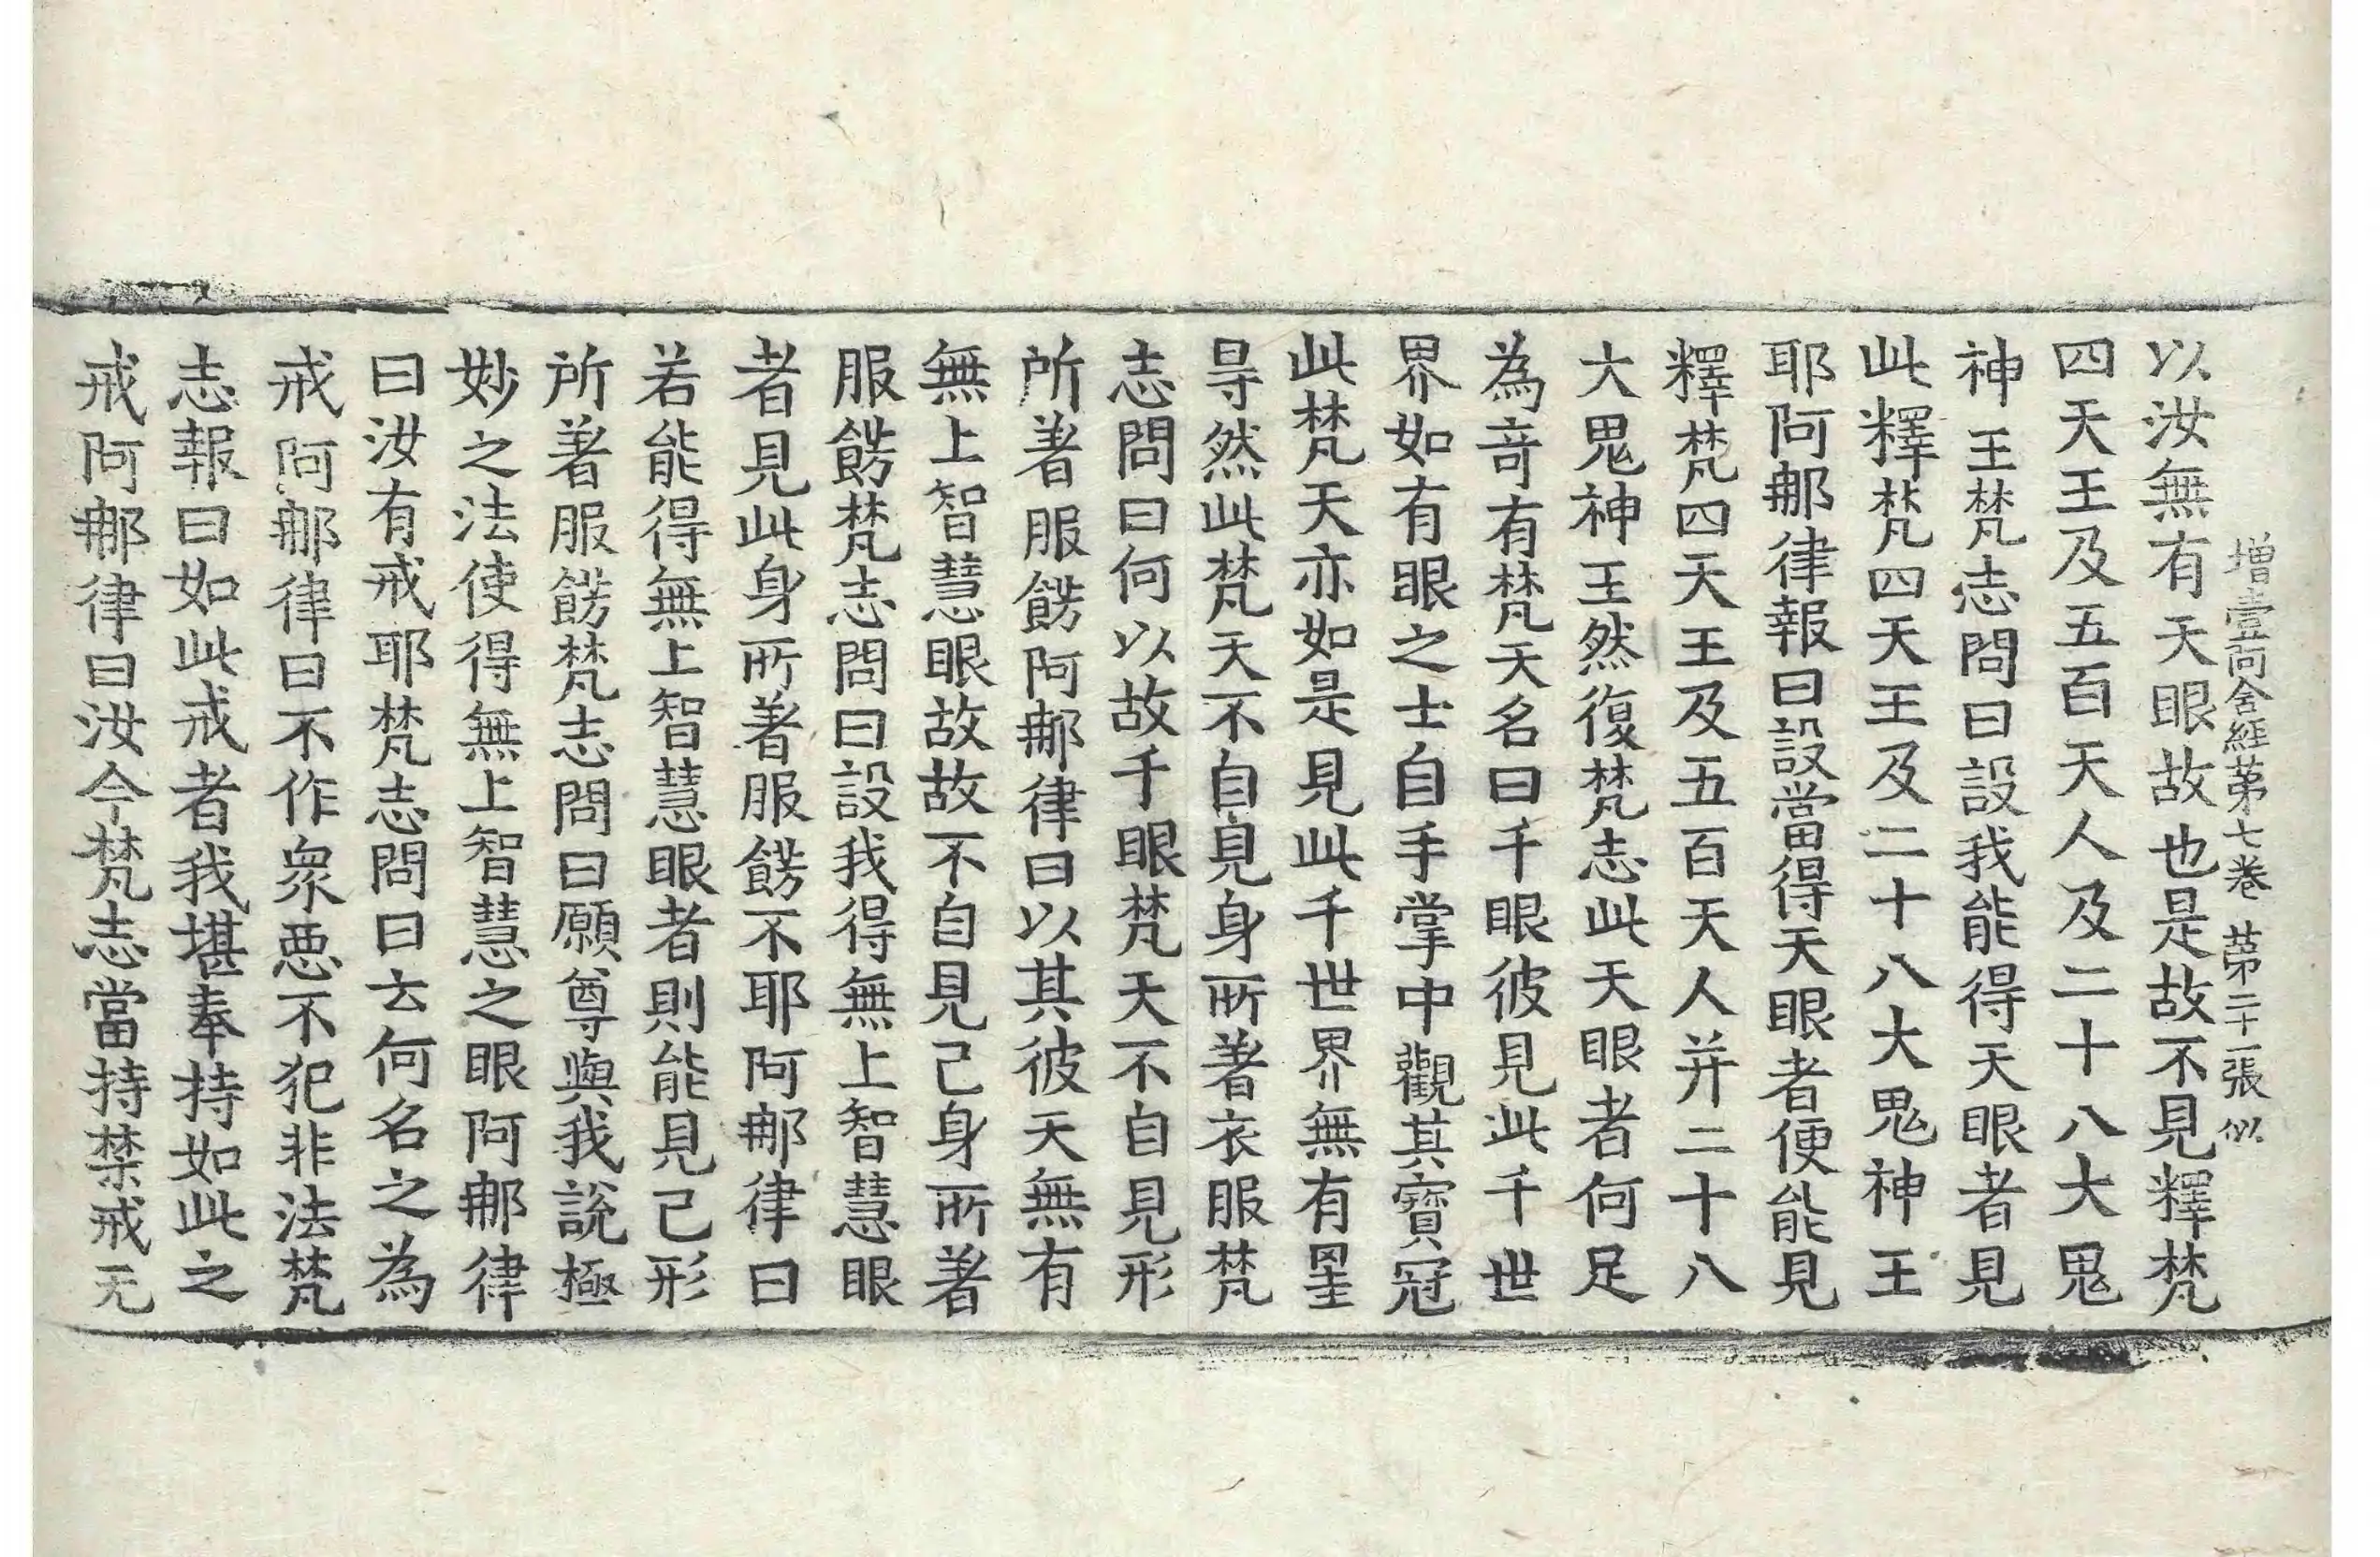 增壹阿含經第七卷 第二十一張 似
以汝無有天眼故也是故不見釋梵
四天王及五百天人及二十八大鬼
神王梵志問曰設我能得天眼者見
此釋梵四天王及二十八大鬼神王
耶阿那律報曰設當得天眼者便能見
釋梵四天王及五百天人并二十八
大鬼神王然復梵志此天眼者何足
為奇有梵天名曰千眼彼見此千世
界如有眼之士自手掌中觀其寶冠
此梵天亦如是見此千世界無有罣
㝵然此梵天不自見身所著衣服梵
志問曰何以故千眼梵天不自見形
所著服餝阿那律曰以其彼天無有
無上智慧眼故故不自見己身所著
服餝梵志問曰設我得無上智慧眼
者見此身所著服餝不耶阿那律曰
若能得無上智慧眼者則能見己形
所著服餝梵志問曰願尊與我說極
妙之法使得無上智慧之眼阿那律
曰汝有戒耶梵志問曰云何名之為
戒阿那律曰不作衆惡不犯非法梵
志報曰如此戒者我堪奉持如此之
戒阿那律曰汝今梵志當持禁戒无